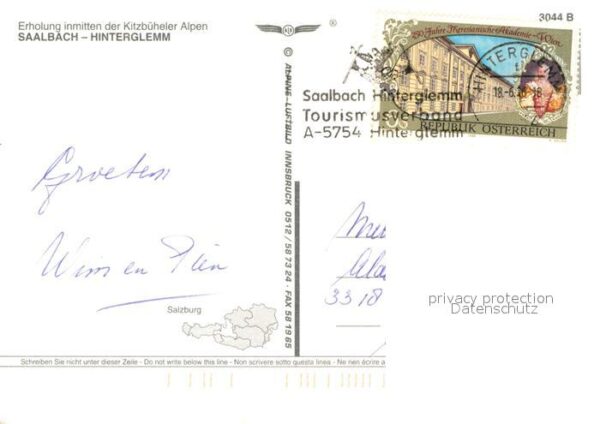 Erholung inmitten der Kitzbüheler Alpen
SAALBACH – HINTERGLEMM
3044 B
250 Jahre Theresianische Akademie - Wien
REPUBLIK ÖSTERREICH
HINTERGLEMM
18-6
Saalbach Hinterglemm
Tourismusverband
A-5754 Hinterglemm
© ALPINE-LUFTBILD INNSBRUCK 0512 / 58 73 24 · FAX 58 19 65
Groeten
Wim en Rien
3318
privacy protection
Datenschutz
Salzburg
Schreiben Sie nicht unter dieser Zeile - Do not write below this line - Non scrivere sotto questa linea - Ne rien écrire a